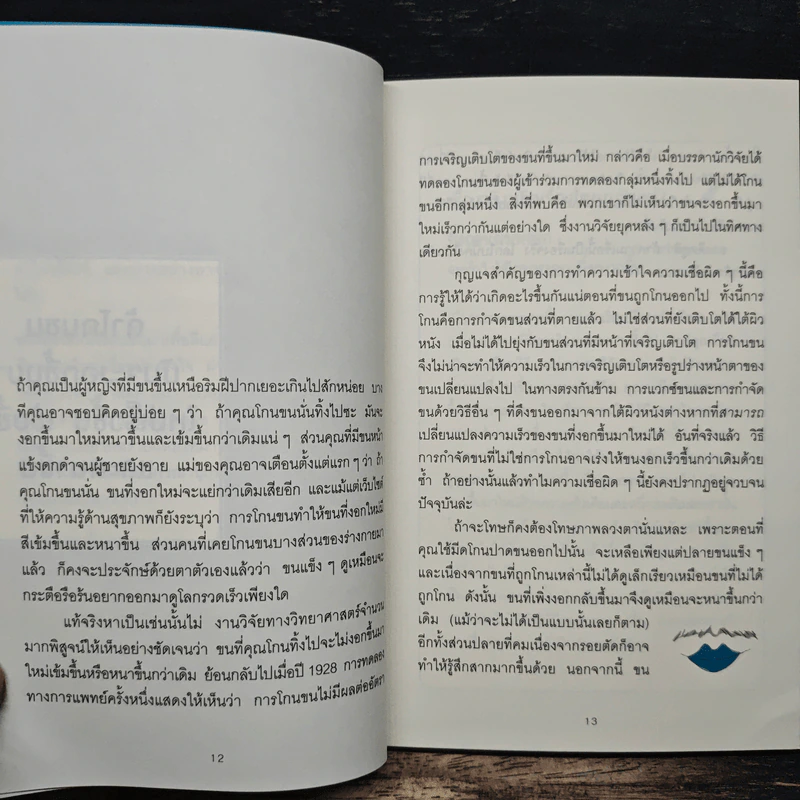 ถ้าคุณเป็นผู้หญิงที่มีขนขึ้นเหนือริมฝีปากเยอะเกินไปสักหน่อย บาง
ทีคุณอาจชอบคิดอยู่บ่อย ๆ ว่า ถ้าคุณโกนขนนั่นทิ้งไปซะ มันจะ
งอกขึ้นมาใหม่หนาขึ้นและเข้มขึ้นกว่าเดิมแน่ ๆ ส่วนคุณที่มีขนหน้า
แข้งดกดำจนผู้ชายยังอาย แม่ของคุณอาจเตือนตั้งแต่แรก ๆ ว่า ถ้า
คุณโกนขนนั่น ขนที่งอกใหม่จะแย่กว่าเดิมเสียอีก และแม้แต่เว็บไซต์
ที่ให้ความรู้ด้านสุขภาพก็ยังระบุว่า การโกนขนทำให้ขนที่งอกใหม่มี
สีเข้มขึ้นและหนาขึ้น ส่วนคนที่เคยโกนขนบางส่วนของร่างกายมา
แล้ว ก็คงจะประจักษ์ด้วยตาตัวเองแล้วว่า ขนแข็ง ๆ ดูเหมือนจะ
กระตือรือร้นอยากออกมาดูโลกรวดเร็วเพียงใด
แท้จริงหาเป็นเช่นนั้นไม่ งานวิจัยทางวิทยาศาสตร์จำนวน
มากพิสูจน์ให้เห็นอย่างชัดเจนว่า ขนที่คุณโกนทิ้งไปจะไม่งอกขึ้นมา
ใหม่เข้มขึ้นหรือหนาขึ้นกว่าเดิม ย้อนกลับไปเมื่อปี 1928 การทดลอง
ทางการแพทย์ครั้งหนึ่งแสดงให้เห็นว่า การโกนขนไม่มีผลต่ออัตรา
12
การเจริญเติบโตของขนที่ขึ้นมาใหม่ กล่าวคือ เมื่อบรรดานักวิจัยได้
ทดลองโกนขนของผู้เข้าร่วมการทดลองกลุ่มหนึ่งทิ้งไป แต่ไม่ได้โกน
ขนอีกกลุ่มหนึ่ง สิ่งที่พบคือ พวกเขาก็ไม่เห็นว่าขนจะงอกขึ้นมา
ใหม่เร็วกว่ากันแต่อย่างใด ซึ่งงานวิจัยยุคหลัง ๆ ก็เป็นไปในทิศทาง
เดียวกัน
กุญแจสำคัญของการทำความเข้าใจความเชื่อผิด ๆ นี้คือ
การรู้ให้ได้ว่าเกิดอะไรขึ้นกันแน่ตอนที่ขนถูกโกนออกไป ทั้งนี้การ
โกนคือการกำจัดขนส่วนที่ตายแล้ว ไม่ใช่ส่วนที่ยังเติบโตได้ใต้ผิว
หนัง เมื่อไม่ได้ไปยุ่งกับขนส่วนที่มีหน้าที่เจริญเติบโต การโกนขน
จึงไม่น่าจะทำให้ความเร็วในการเจริญเติบโตหรือรูปร่างหน้าตาของ
ขนเปลี่ยนแปลงไป ในทางตรงกันข้าม การแวกซ์ขนและการกำจัด
ขนด้วยวิธีอื่น ๆ ที่ดึงขนออกมาจากใต้ผิวหนังต่างหากที่สามารถ
เปลี่ยนแปลงความเร็วของขนที่งอกขึ้นมาใหม่ได้ อันที่จริงแล้ว วิธี
การกำจัดขนที่ไม่ใช่การโกนอาจเร่งให้ขนงอกเร็วขึ้นกว่าเดิมด้วย
ซ้ำ ถ้าอย่างนั้นแล้วทำไมความเชื่อผิด ๆ นี้ยังคงปรากฏอยู่จวบจน
ปัจจุบันล่ะ
ถ้าจะโทษก็คงต้องโทษภาพลวงตานั่นแหละ เพราะตอนที่
คุณใช้มีดโกนปาดขนออกไปนั้น จะเหลือเพียงแต่ปลายขนแข็ง ๆ
และเนื่องจากขนที่ถูกโกนเหล่านี้ไม่ได้ดูเล็กเรียวเหมือนขนที่ไม่ได้
ถูกโกน ดังนั้น ขนที่เพิ่งงอกกลับขึ้นมาจึงดูเหมือนจะหนาขึ้นกว่า
เดิม (แม้ว่าจะไม่ได้เป็นแบบนั้นเลยก็ตาม)
อีกทั้งส่วนปลายที่คมเนื่องจากรอยตัดก็อาจ
ทำให้รู้สึกสากมากขึ้นด้วย นอกจากนี้ ขน
13